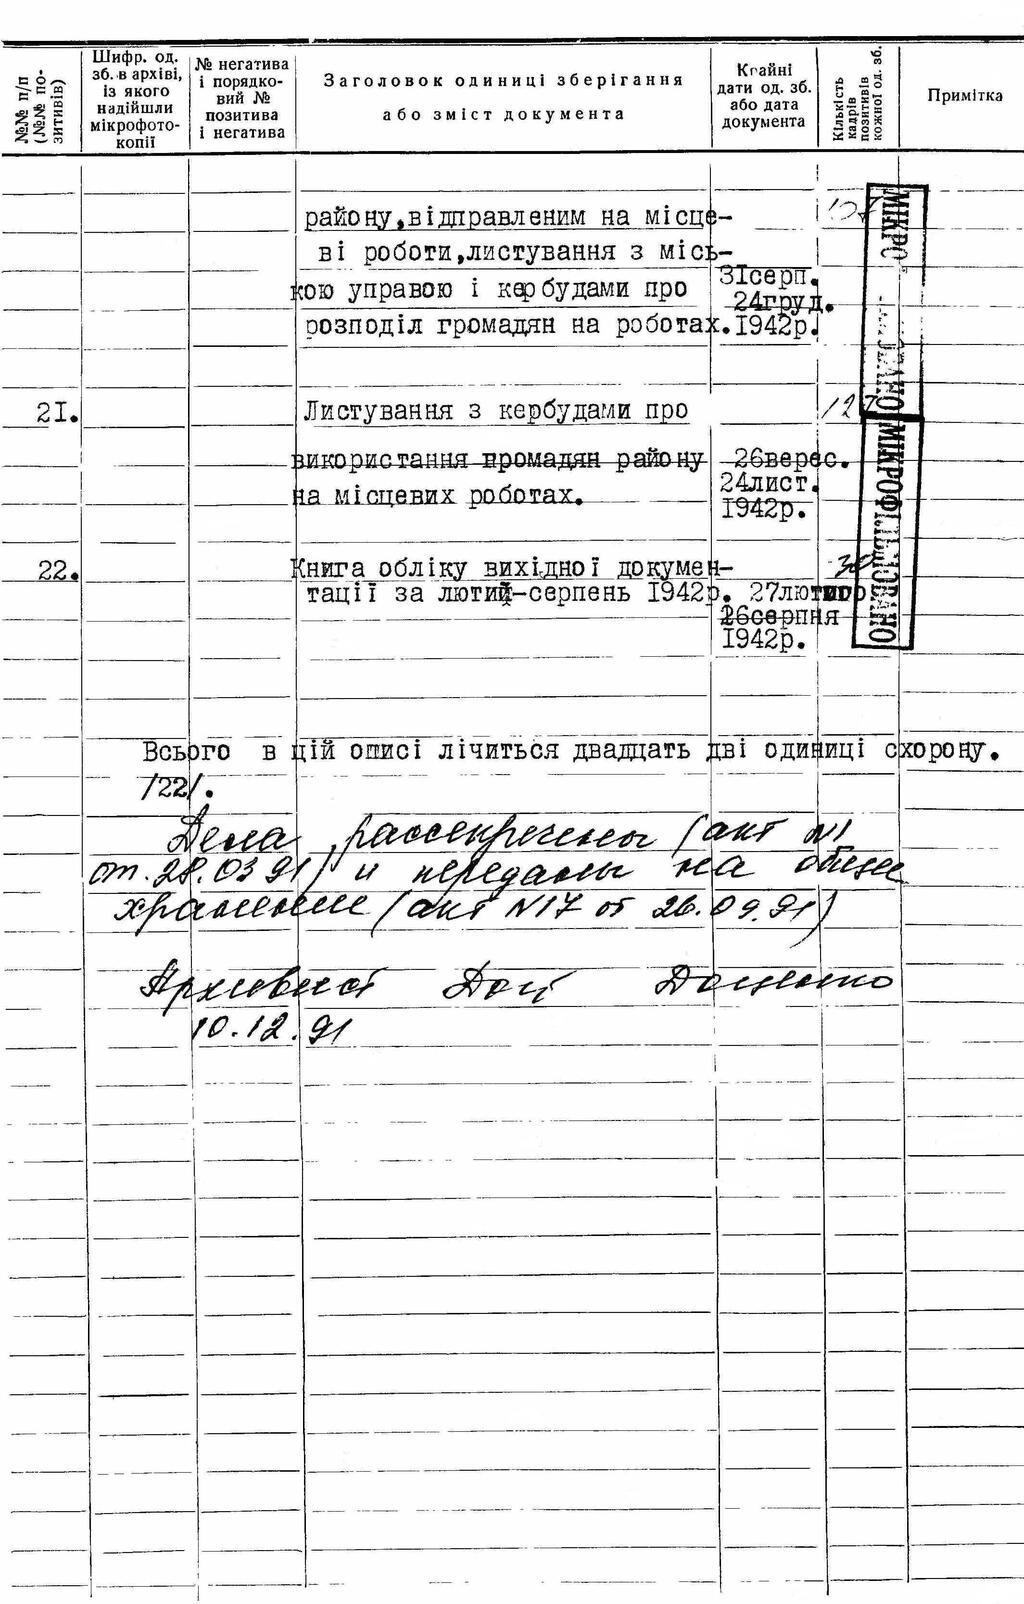 №№ п/п
(№№ по-
зитивів)
Шифр. од.
зб. в архіві,
із якого
надійшли
мікрофото-
копії
№ негатива
і порядко-
вий №
позитива
і негатива
Заголовок одиниці зберігання
або зміст документа
Крайні
дати од. зб.
або дата
документа
Кількість
кадрів
позитивів
кожної од. зб.
Примітка
району,відправленим на місце-
ві роботи,листування з місь-
кою управою і кербудами про
розподіл громадян на роботах.
31серп.
24груд.
1942р.
107
21.
Листування з кербудами про
використання громадян району
на місцевих роботах.
26верес.
24лист.
1942р.
127
22.
Книга обліку вихідної докумен-
тації за лютий-серпень 1942р.
27лютого
26серпня
1942р.
30
МІКРОФІЛЬМОВАНО
Всього в цій описі лічиться двадцать дві одиниці схорону.
/22/.
Дела рассекречены (акт №1
от.28.03 91) и переданы на общее
хранение (акт №17 от 26.09.91)
Архивист Доц Доценко
10.12.91